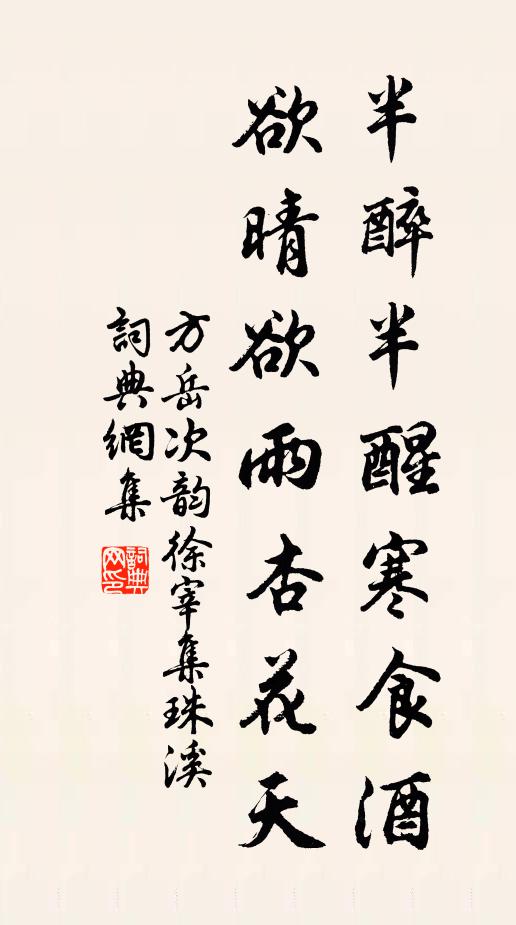 半醉半醒寒食酒
欲晴欲雨杏花天
方岳次韵徐宰集珠溪
詞典網集
詞典网印